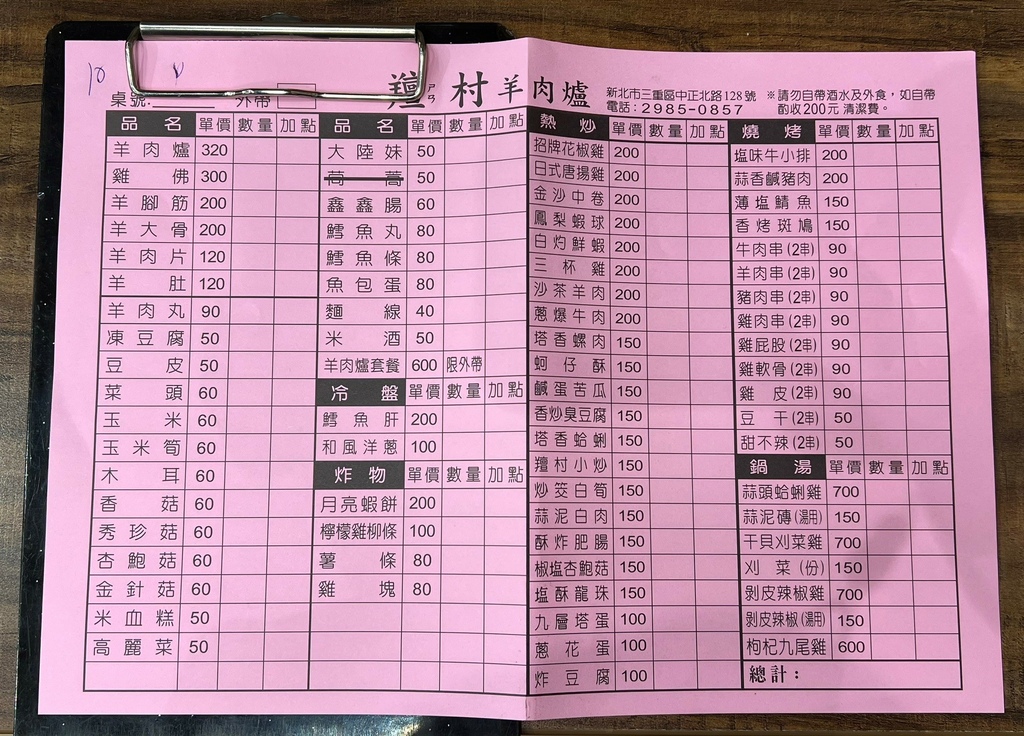 10
羶ㄕㄢ村羊肉爐
新北市三重區中正北路128號 ※請勿自帶酒水及外食，如自帶
桌號:______ 外帶
電話：2985-0857 酌收200元清潔費。
品名 單價 數量 加點
羊肉爐 320
雞佛 300
羊腳筋 200
羊大骨 200
羊肉片 120
羊肚 120
羊肉丸 90
凍豆腐 50
豆皮 50
菜頭 60
玉米 60
玉米筍 60
木耳 60
香菇 60
秀珍菇 60
杏鮑菇 60
金針菇 60
米血糕 50
高麗菜 50
品名 單價 數量 加點
大陸妹 50
茼蒿 50
鑫鑫腸 60
鱈魚丸 80
鱈魚條 80
魚包蛋 80
麵線 40
米酒 50
羊肉爐套餐 600 限外帶
冷盤 單價 數量 加點
鱈魚肝 200
和風洋蔥 100
炸物 單價 數量 加點
月亮蝦餅 200
檸檬雞柳條 100
薯條 80
雞塊 80
熱炒 單價 數量 加點
招牌花椒雞 200
日式唐揚雞 200
金沙中卷 200
鳳梨蝦球 200
白灼鮮蝦 200
三杯雞 200
沙茶羊肉 200
蔥爆牛肉 200
塔香螺肉 150
蚵仔酥 150
鹹蛋苦瓜 150
香炒臭豆腐 150
塔香蛤蜊 150
羶村小炒 150
炒筊白筍 150
蒜泥白肉 150
酥炸肥腸 150
椒塩杏鮑菇 150
塩酥龍珠 150
九層塔蛋 100
蔥花蛋 100
炸豆腐 100
燒烤 單價 數量 加點
塩味牛小排 200
蒜香鹹豬肉 200
薄塩鯖魚 150
香烤斑鳩 150
牛肉串(2串) 90
羊肉串(2串) 90
豬肉串(2串) 90
雞肉串(2串) 90
雞屁股(2串) 90
雞軟骨(2串) 90
雞皮(2串) 90
豆干(2串) 50
甜不辣(2串) 50
鍋湯 單價 數量 加點
蒜頭蛤蜊雞 700
蒜泥磚(湯用) 150
干貝刈菜雞 700
刈菜(份) 150
剝皮辣椒雞 700
剝皮辣椒(湯用) 150
枸杞九尾雞 600
總計：